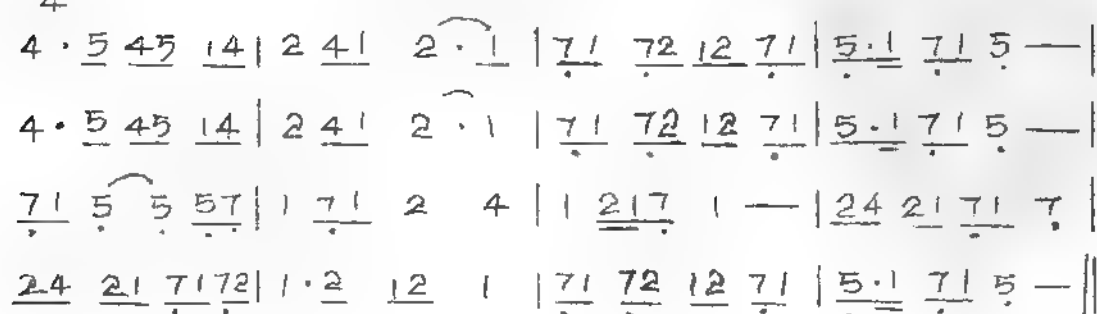 4
4 · 5 45 14 | 2 41 2 · 1 | 71 72 12 71 | 5·1 71 5 — |
4 · 5 45 14 | 2 41 2 · 1 | 71 72 12 71 | 5·1 71 5 — |
71 5 5 57 | 1 71 2 4 | 1 217 1 — | 24 21 71 7 |
24 21 7172 | 1·2 12 1 | 71 72 12 71 | 5·1 71 5 — ||